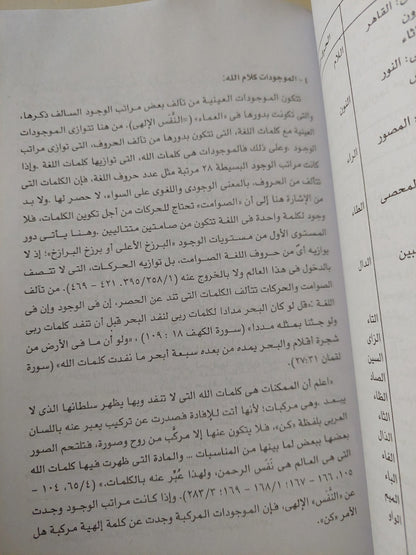 ٤ - الموجودات كلام الله:
تتكون الموجودات العينية من تآلف بعض مراتب الوجود السالف ذكرها،
والتى تكونت بدورها فى «العماء» (=النَّفَس الإلهى). من هنا تتوازى الموجودات
العينية مع كلمات اللغة، التى تتكون بدورها من تآلف الحروف، التى توازى مراتب
الوجود. وعلى ذلك فالموجودات هى كلمات الله، التى توازيها كلمات اللغة. وإذا
كانت مراتب الوجود البسيطة ٢٨ مرتبة مثل عدد حروف اللغة، فإن الكلمات التى
تتآلف من الحروف، بالمعنى الوجودى واللغوى على السواء، لا حصر لها. ولا بد
من الإشارة هنا إلى أن «الصوامت» تحتاج للحركات من أجل تكوين الكلمات، فلا
وجود لكلمة واحدة فى اللغة تتكون من صامتين متتاليين. وهنا يأتى دور
المستوى الأول من مستويات الوجود «البرزخ الأعلى أو برزخ البرازخ»؛ إذ لا
يوازيه أىٌّ من حروف اللغة الصوامت، بل توازيه الحركات، التى لا تتصف
بالدخول فى هذا العالم ولا بالخروج عنه (٣٩٥/٢٥٨/١، ٤٢١ - ٤٦٩). من تآلف
الصوامت والحركات تتألف الكلمات التى تند عن الحصر، إن فى الوجود وإن فى
اللغة: «قل لو كان البحر مدادا لكلمات ربى لنفد البحر قبل أن تنفد كلمات ربى
ولو جئنا بمثله مددا» (سورة الكهف ١٨ : ١٠٩). «ولو أن ما فى الأرض من
شجرة أقلام والبحر يمده من بعده سبعة أبحر ما نفدت كلمات الله» (سورة
لقمان ٢٧:٣١).
«اعلم أن الممكنات هى كلمات الله التى لا تنفد وبها يظهر سلطانها الذى لا
يبعد. وهى مركبات؛ لأنها أتت للإفادة فصدرت عن تركيب يعبر عنه باللسان
العربى بلفظة «كن». فلا يتكون عنها إلا مركَّب من روح وصورة، فتلتحم الصور
بعضها ببعض لما بينها من المناسبات ... والمادة التى ظهرت فيها كلمات الله
التى هى العالم هى نَفَس الرحمن، ولهذا عُبِّر عنه بالكلمات.» (٦٥/٤، ١٠٤ -
١٠٥، ١٦٦ - ١٦٧؛ ١٦٨/١ - ١٦٩؛ ٢٨٣/٣). وإذا كانت مراتب الوجود وجدت
عن «النَّفَس» الإلهى، فإن الموجودات المركبة وجدت عن كلمة إلهية مركبة هى
الأمر «كن».
القاهر
اللام
النور
النون
المصور
الراء
المحصى
الطاء
الدال
التاء
الزاى
السين
الصاد
الظاء
الثاء
الذال
الفاء
الباء
الميم
الواو